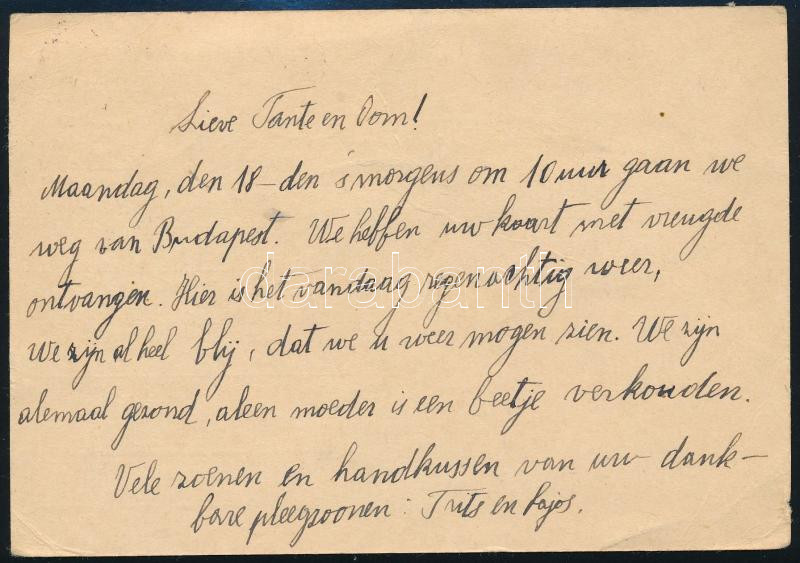 Lieve Tante en Oom!
Maandag, den 18-den s'morgens om 10 uur gaan we
weg van Budapest. We hebben uw kaart met vreugde
ontvangen. Hier is het vandaag regenachtig weer,
We zijn al heel blij, dat we u weer mogen zien. We zijn
alemaal gezond, aleen moeder is een beetje verkouden.
Vele zoenen en handkussen van uw dank-
bare pleegzoonen: Frits en Lajos.
darabanth